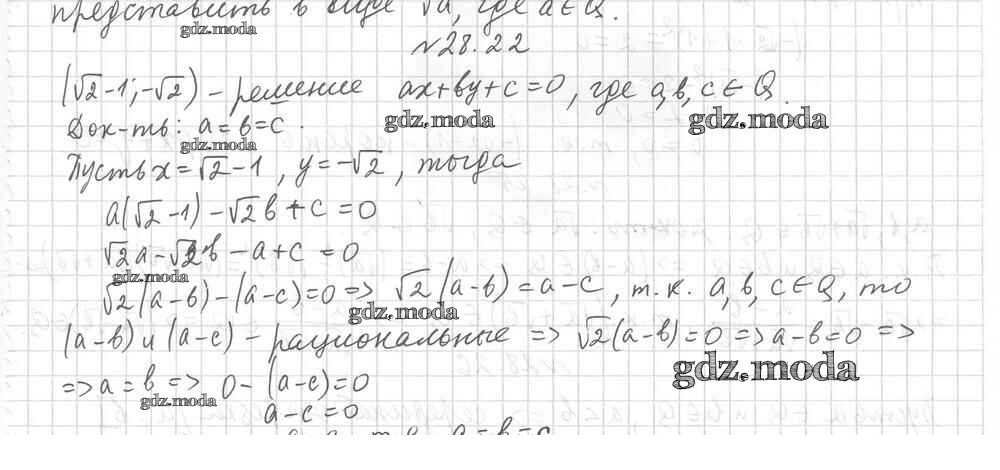 представить в виде √a, где a∈Q.
gdz.moda
№28.22
(√2-1; -√2) - решение ax+by+c=0, где a,b,c∈Q.
gdz.moda gdz.moda
Док-ть: a=b=c.
gdz.moda
Пусть x=√2-1, y=-√2, тогда
a(√2-1)-√2b+c=0
√2a-√2b-a+c=0
gdz.moda
√2(a-b)-(a-c)=0=>√2(a-b)=a-c, т.к. a,b,c∈Q, то
gdz.moda
(a-b) и (a-c) - рациональные => √2(a-b)=0=>a-b=0=>
gdz.moda
=>a=b=> 0-(a-c)=0
gdz.moda
a-c=0
a=b=c